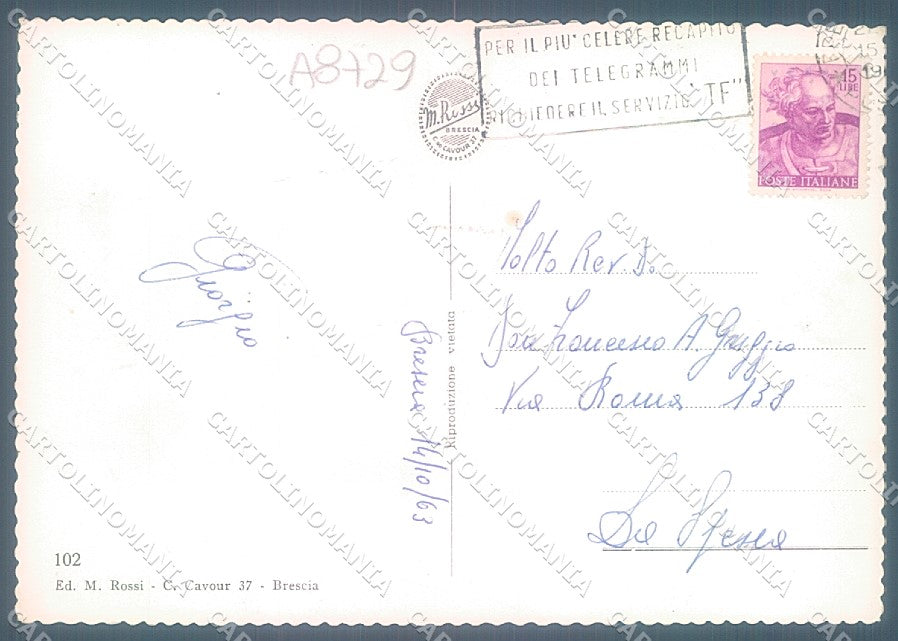 A8729
PER IL PIU' CELERE RECAPITO
DEI TELEGRAMMI
RICHIEDERE IL SERVIZIO "TF"
15
19
M. Rossi
BRESCIA
C. CAVOUR 37
15
LIRE
POSTE ITALIANE
Giorgio
Brescia 14/10/63
Riproduzione vietata
Molto Rev. D.
Francesco A.
Via Roma 138
La Spezia
102
Ed. M. Rossi - C. Cavour 37 - Brescia
CARTOLINOMANIA